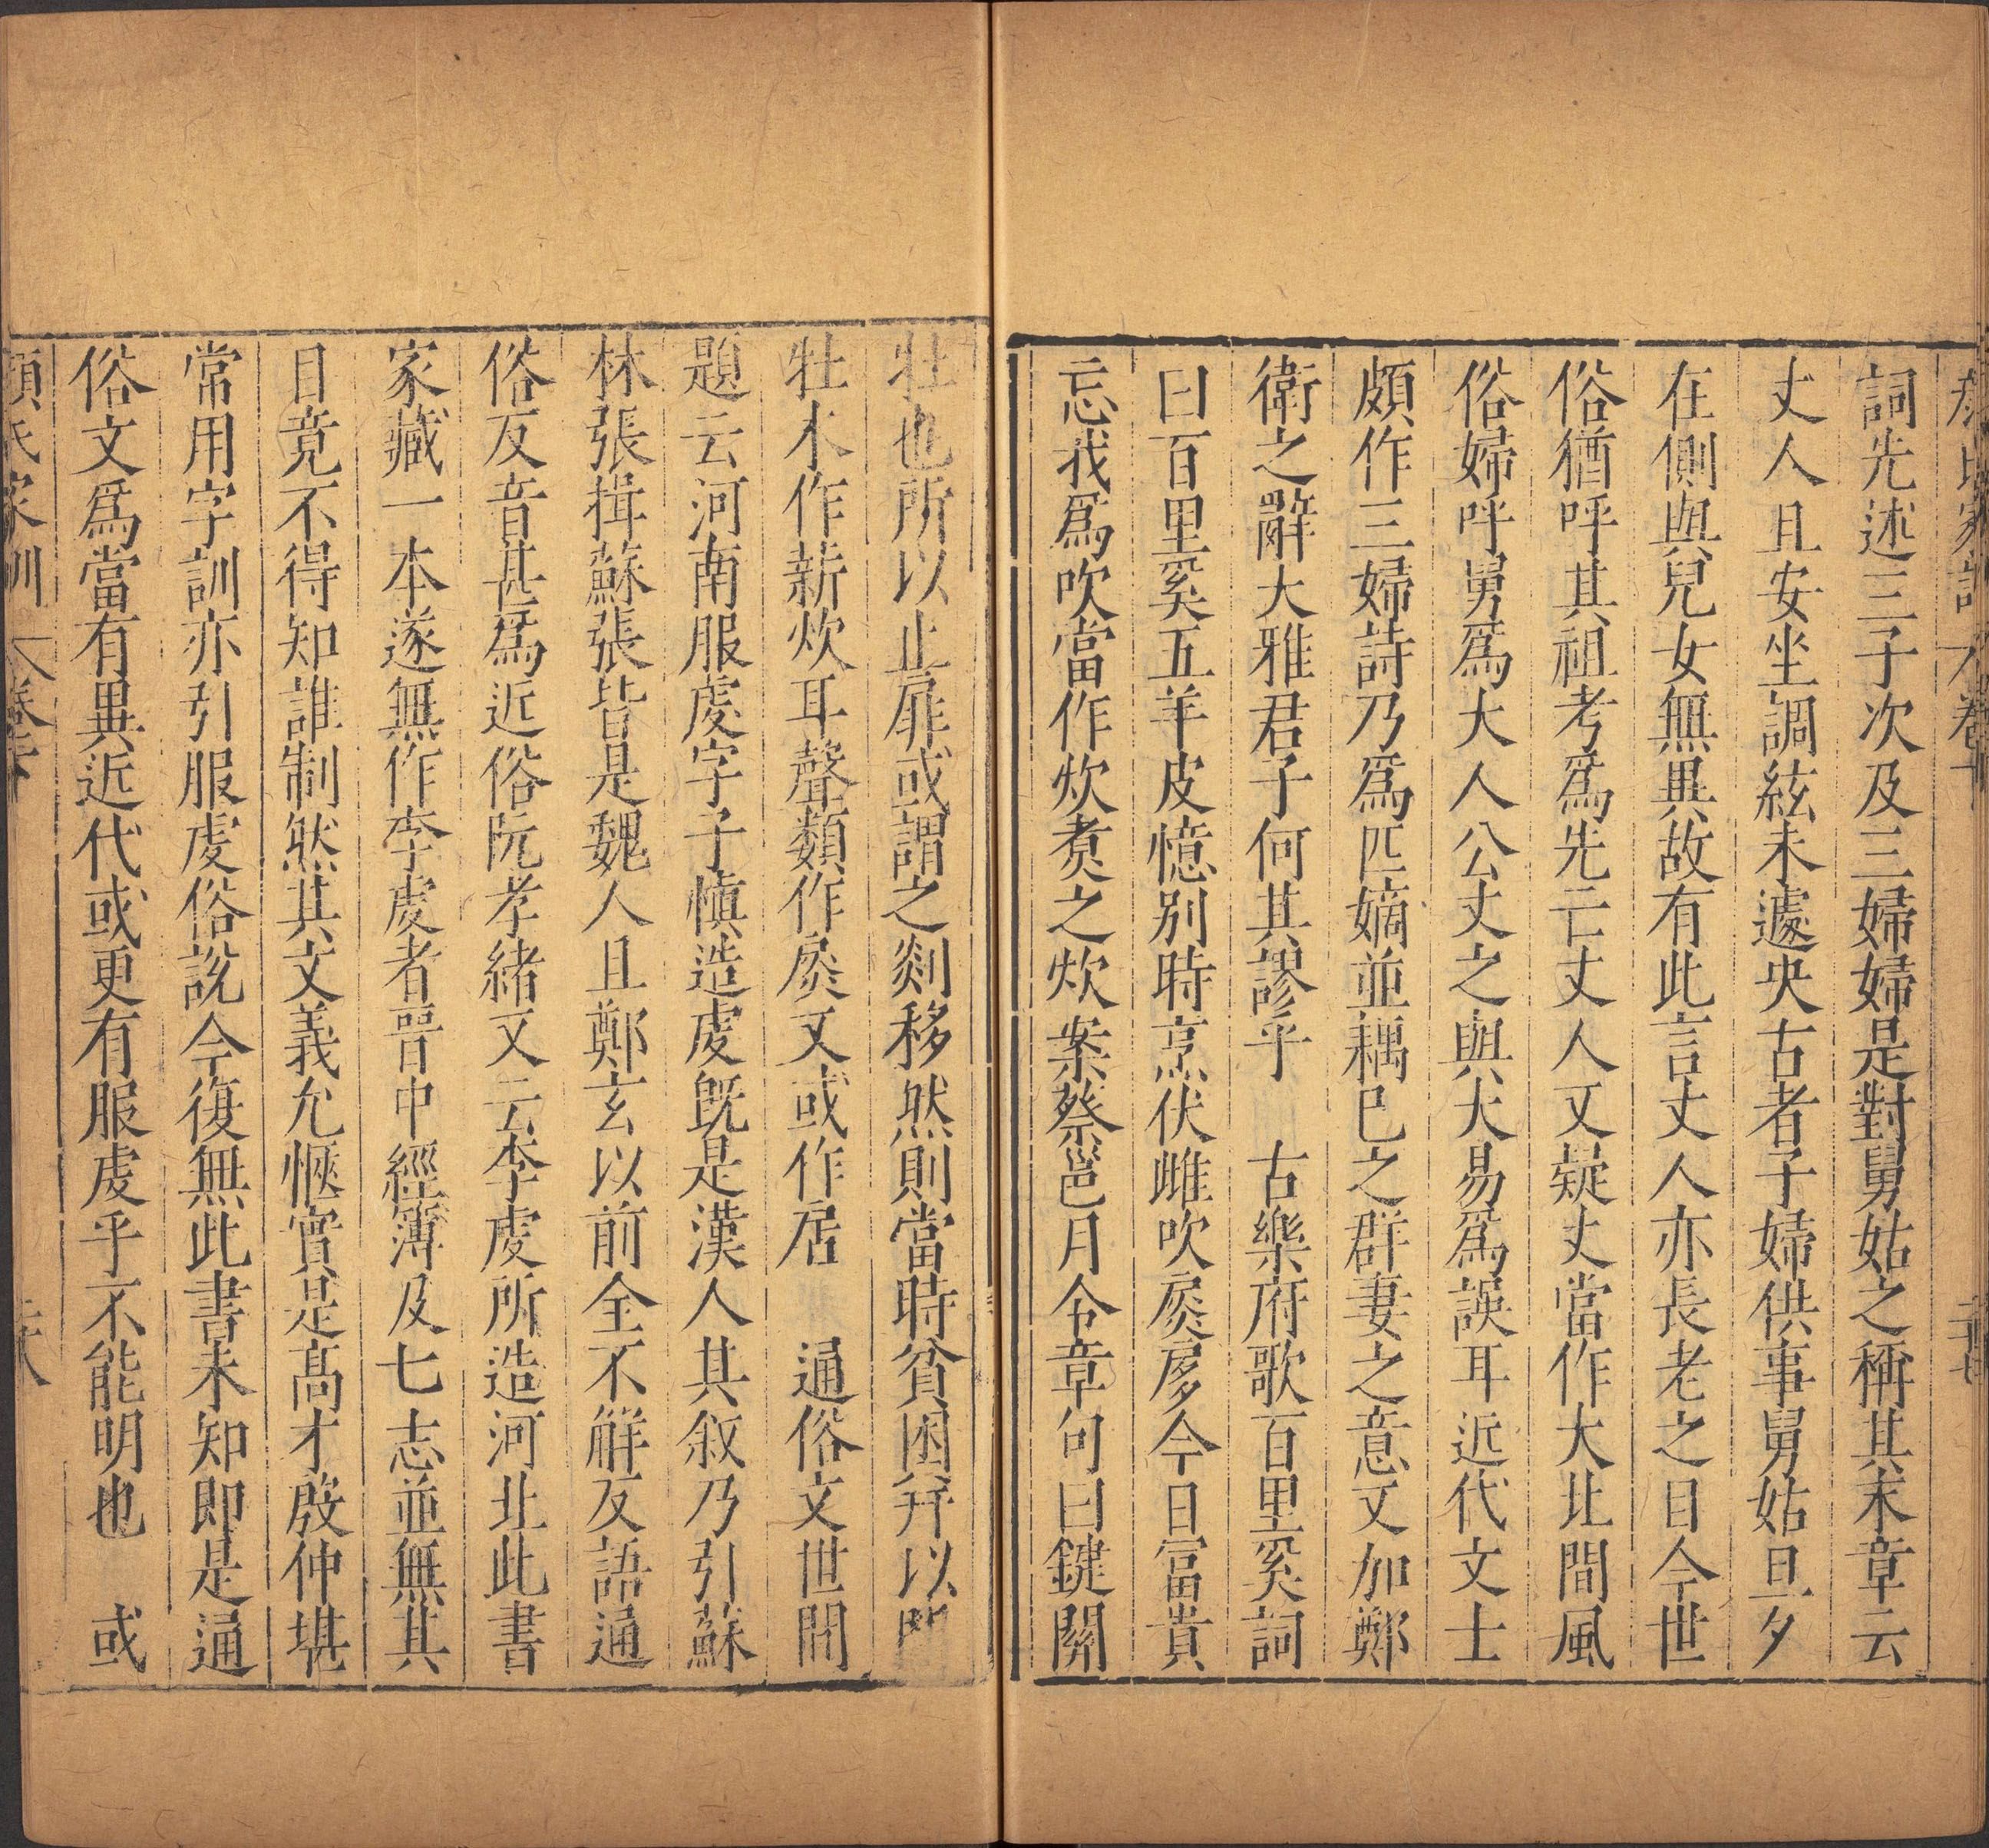 顏氏家訓 卷下
詞先述三子次及三婦婦是對舅姑之稱其末章云
丈人且安坐調絃未遽央古者子婦供事舅姑旦夕
在側與兒女無異故有此言丈人亦長老之目今世
俗猶呼其祖考爲先亡丈人又疑丈當作大北間風
俗婦呼舅爲大人公丈之與大易爲誤耳近代文士
頗作三婦詩乃爲匹嫡並耦巳之群妻之意又加鄭
衛之辭大雅君子何其謬乎 古樂府歌百里奚詞
曰百里奚五羊皮憶別時烹伏雌吹扊扅今日富貴
忘我爲吹當作炊煑之炊案蔡邕月令章句曰鍵關
牡也所以止扉或謂之剡移然則當時貧困幷以門
牡木作薪炊耳聲類作扊又或作扂 通俗文世間
題云河南服虔字子愼造虔旣是漢人其叙乃引蘇
林張揖蘇張皆是魏人且鄭玄以前全不解反語通
俗反音甚爲近俗阮孝緒又云李虔所造河北此書
家藏一本遂無作李虔者晉中經簿及七志並無其
目竟不得知誰制然其文義允愜實是高才殷仲堪
常用字訓亦引服虔俗說今復無此書未知即是通
俗文爲當有異近代或更有服虔乎不能明也 或
顏氏家訓 卷下 二十八